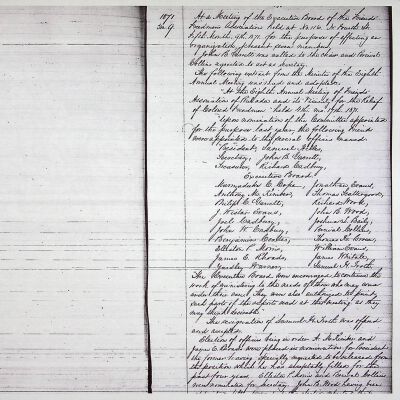 1871
At a Meeting of the Executive Board of the Friends
Freedmens Association held at No. 116 N. Fourth St.
1871. for the purpose of effecting an
organization, present men,
John B. Garrett was called to the Chair and Percival
Collins agreed to act as Secretary.
The following extract from the Minutes of the Eighth
Annual Meeting was read and adopted.
"At the Eighth Annual Meeting of Friends
Association of Philada and its Vicinity for the Relief
of Colored Freedmen held 4th mo. 17th 1871.
"Upon nomination of the Committee appointed
for the purpose last year, the following Friends
were appointed to the several Offices named.
President, Samuel
Secretary, John B. Garrett,
Treasurer, Richard Cadbury,
Executive Board.
Marmaduke C. Cope, Jonathan Evans,
Anthony M. Kimber, Thomas Scattergood,
Philip C. Garrett, Richard Wood,
J. Wistar Evans, John B. Wood,
Joel Cadbury, Joshua L. Baily,
John W. Cadbury, Percival Collins,
Benjamin Coates, Thomas
Elliston P. Morris, William Evans,
James E. Rhoads, James Whitall,
Yardley Warner, Samuel H. Troth.
The Executive Board were encouraged to continue the
work of ministering to the needs of those who may come
under their care. They were also authorized to print
such part of the reports read at this meeting as they
may think desirable."
The resignation of Samuel H. Troth was offered
and accepted.
Election of officers being in order A. M. Kimber and
James E. Rhoads were placed in nomination for President
the former having specially requested to be released from
the position which he has acceptably filled for the
past four years. Elliston P. Morris and Percival Collins
were nominated for Secretary. John B. Wood having been